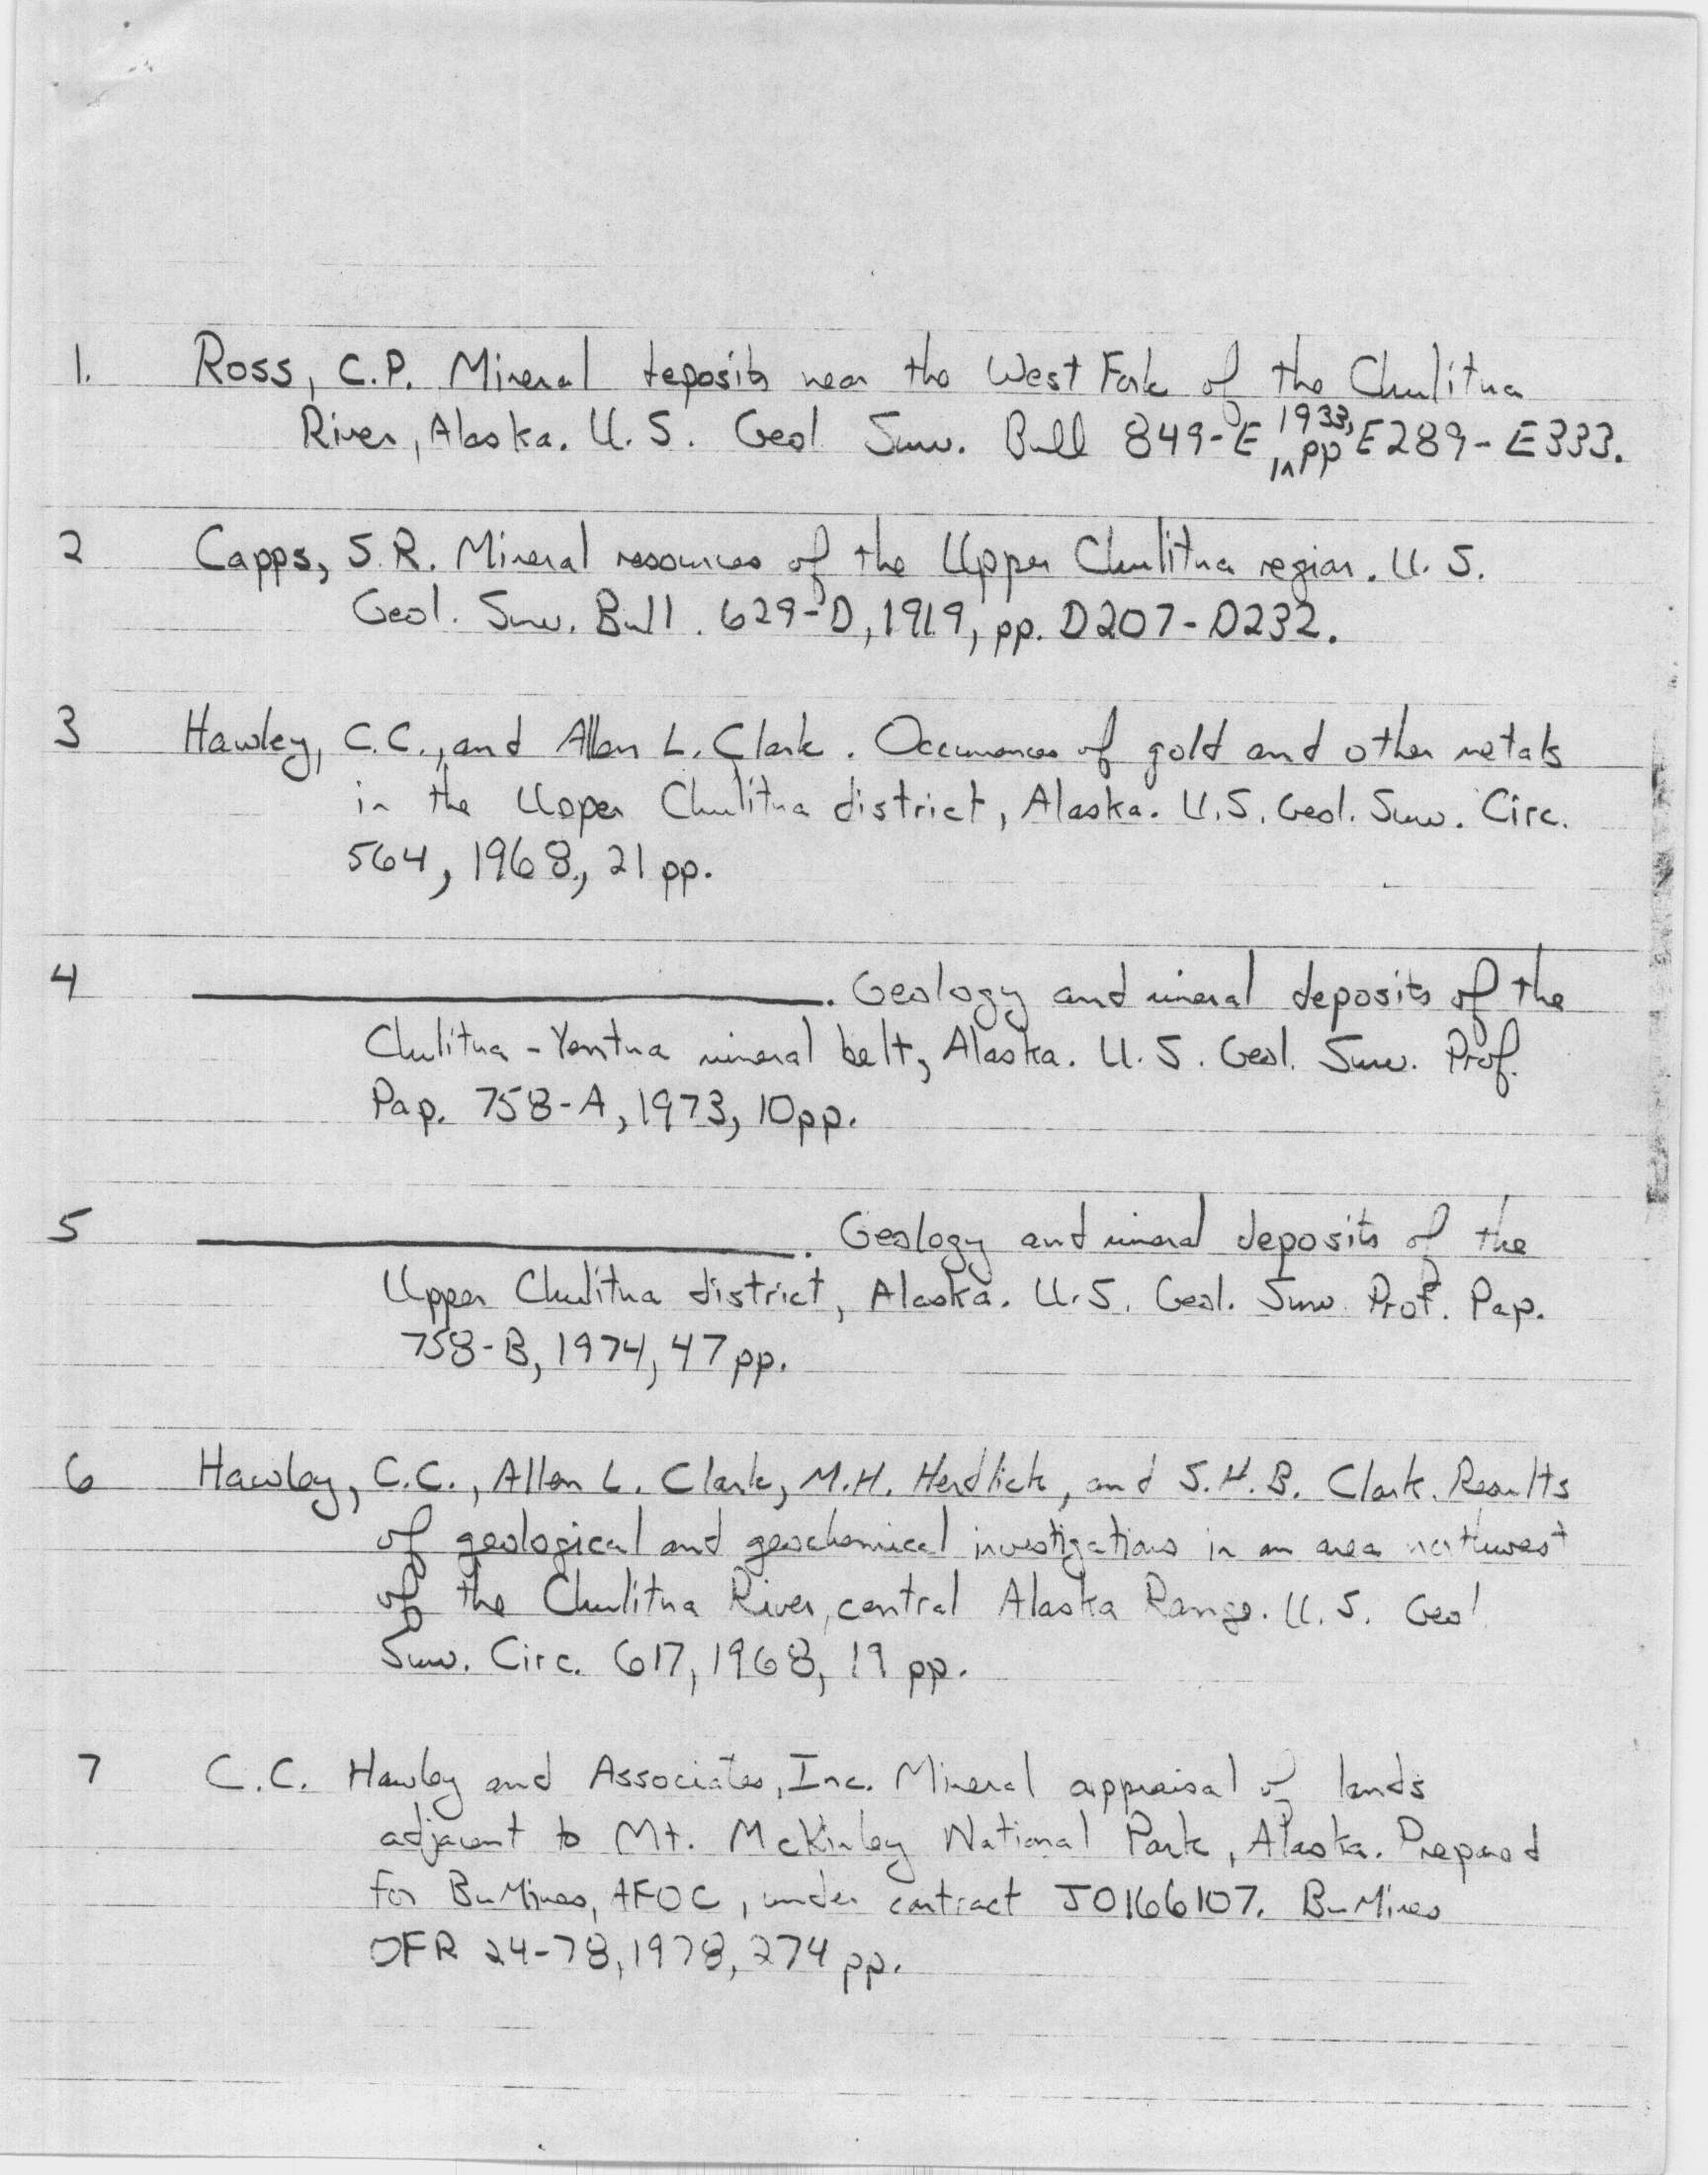 1. Ross, C.P. Mineral deposits near the West Fork of the Chulitna
River, Alaska. U. S. Geol Surv. Bull 849-E, 1933, pp E289-E333.
2 Capps, S.R. Mineral resources of the Upper Chulitna region. U. S.
Geol. Surv. Bull. 629-D, 1919, pp. D207-D232.
3 Hawley, C.C., and Allen L. Clark. Occurrences of gold and other metals
in the Upper Chulitna district, Alaska. U.S. Geol. Surv. Circ.
564, 1968, 21 pp.
4 . Geology and mineral deposits of the
Chulitna-Yentna mineral belt, Alaska. U. S. Geol. Surv. Prof.
Pap. 758-A, 1973, 10 pp.
5 . Geology and mineral deposits of the
Upper Chulitna district, Alaska. U.S. Geol. Surv. Prof. Pap.
758-B, 1974, 47 pp.
6 Hawley, C.C., Allen L. Clark, M.H. Herdlick, and S.H.B. Clark. Results
of geological and geochemical investigations in an area northwest
of the Chulitna River, central Alaska Range. U. S. Geol
Surv. Circ. 617, 1968, 19 pp.
7 C.C. Hawley and Associates, Inc. Mineral appraisal of lands
adjacent to Mt. McKinley National Park, Alaska. Prepared
for BuMines, AFOC, under contract J0166107. BuMines
OFR 24-78, 1978, 274 pp.